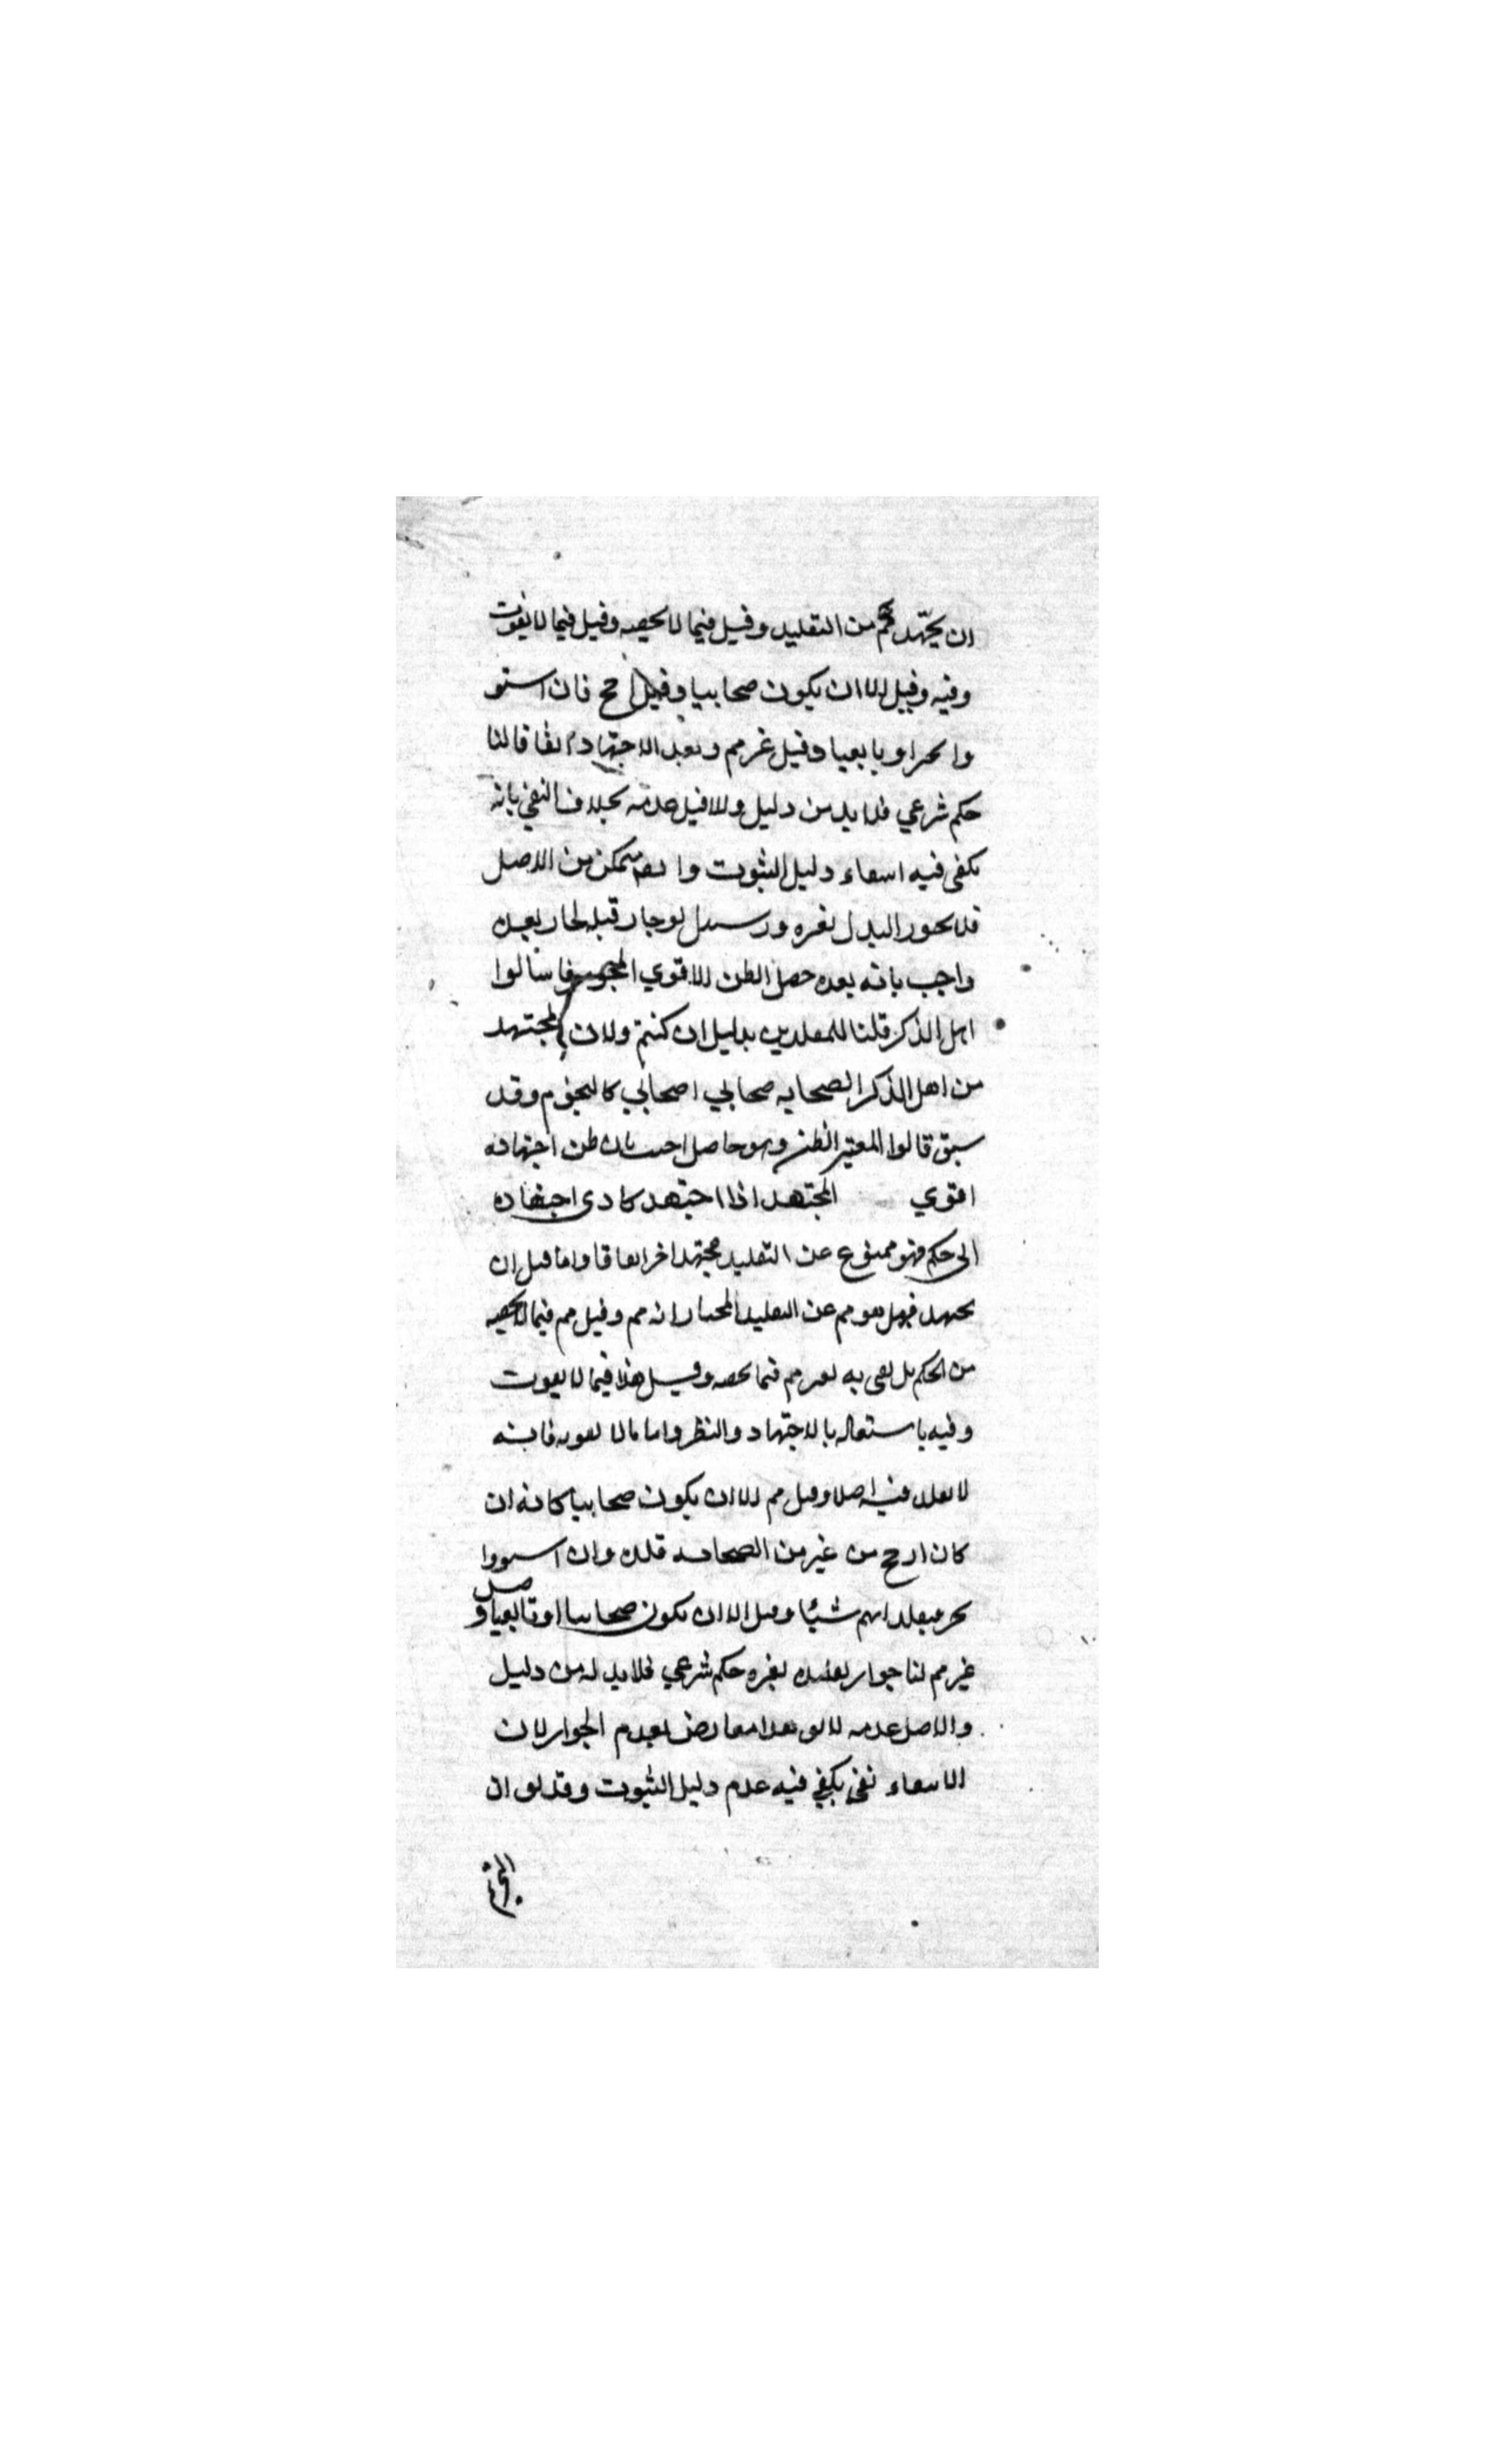 ان يجتهد مم من التقليد وقيل فيما لا يخصه وقيل فيما لا يفوت
وفيه وقيل الا ان يكون صحابيا وقيل ارجح فان استو
وا تخير او تابعيا وقيل غر مم وبعد الاجتهاد اتفاقا لنا
حكم شرعي فلا بد من دليل والا قيل عدمه بخلاف النفي بانه
يكفي فيه اسعاء دليل الثبوت وا متمكن من الاصل
فلا يجور البدل لغره لوجار قبله لجار بعده
واجب بانه بعده حصل الظن الاقوي المجوز فاسالوا
اهل الذكر قلنا للمقلدين بدليل ان كنتم ولان المجتهد
من اهل الذكر الصحابه صحابي اصحابي كالنجوم وقد
سبق قالوا المعتبر الظن وهو حاصل اجيب بان ظن اجتهاده
اقوي المجتهد اذا اجتهد كادى اجتهاده
الى حكم فهو ممنوع عن التقليد مجتهد اخر اتعاقا واما قبل ان
يجتهد فهل هو مم عن التقليد المختار انه مم وقيل مم فيما لا يخصه
من الحكم بل يفى به لغر مم فيما يخصه وقيل هذا فيما لا يفوت
وفيه باستعاله بالاجتهاد والنظر واما ما لا يفوته فانه
لا يقلد فيه اصلا وقيل مم الا ان يكون صحابيا كانه ان
كان ارجح من غير من الصحابه قلده وان استووا
تخر فيقلد ايهم شيئا وقيل الا ان يكون صحابيا او تابعيا وقيل
غير مم لنا جوار تقليده لغره حكم شرعي فلا بد له من دليل
والاصل عدمه لا يق هدا معارض بعدم الجوار لان
الاسعاء نفى يكفي فيه عدم دليل الثبوت وقد يق ان